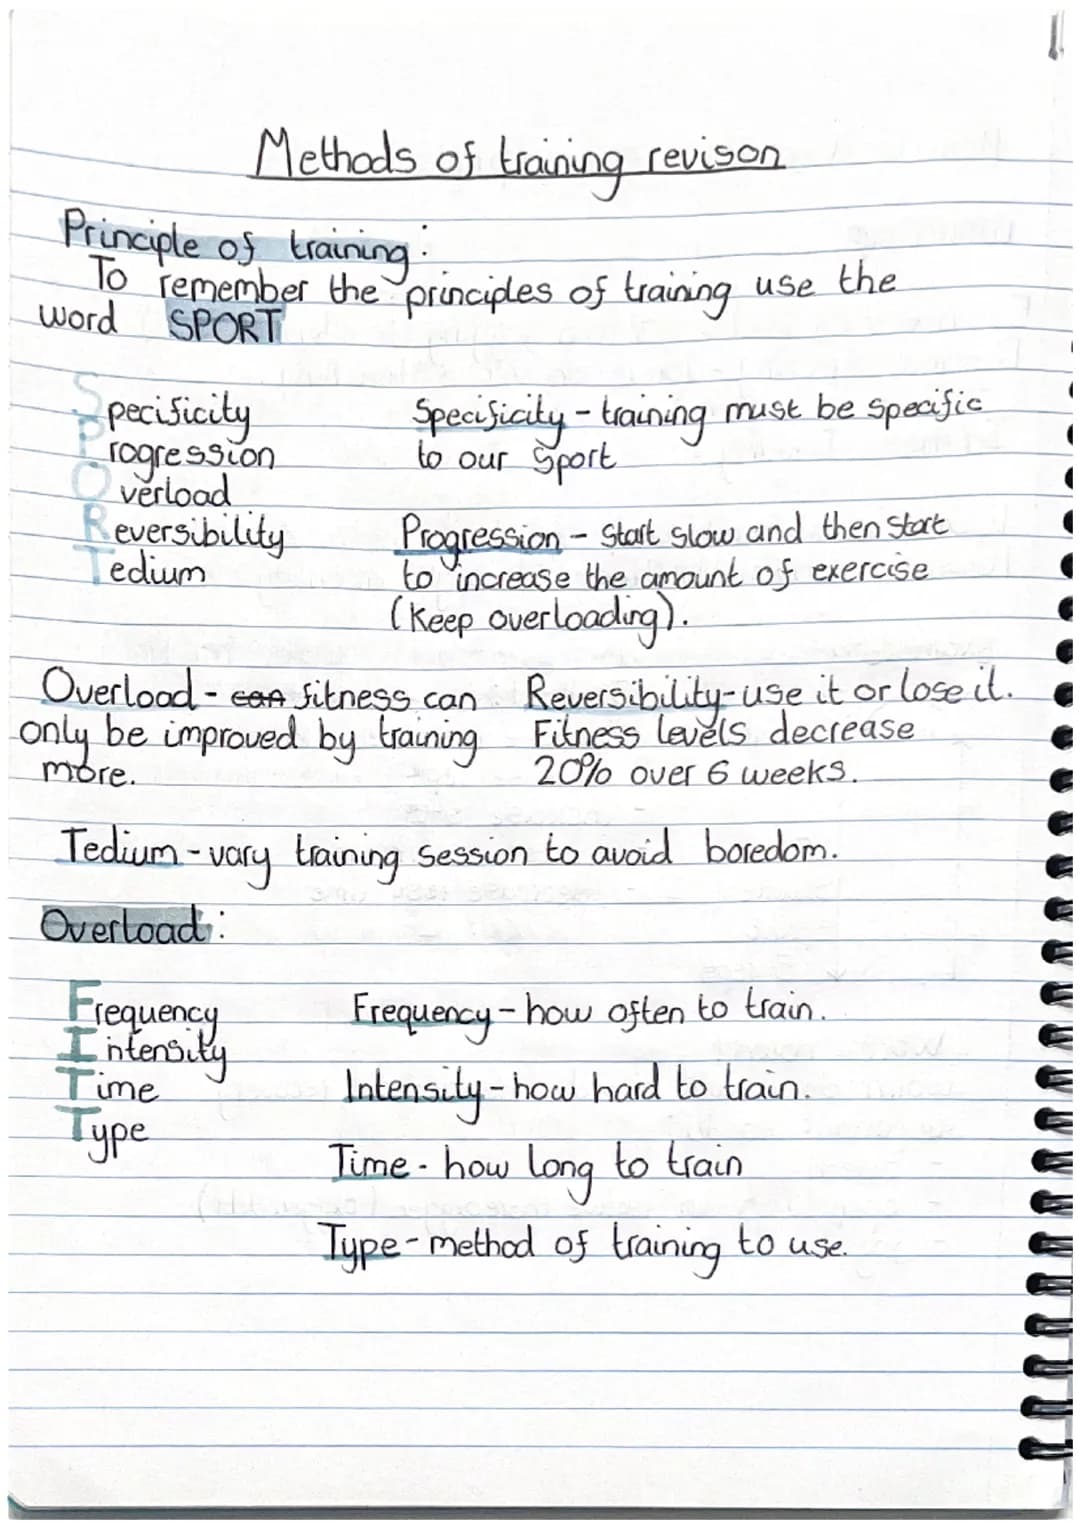 Methods of training revison
Principle of training:
To remember the principles of training use the
word SPORT
Specificity
Progression
Overload
Reversibility
Tedium
Specificity - training must be specific
to our Sport
Progression - start slow and then start
to increase the amount of exercise
(Keep overloading).
Overload - can fitness can
only be improved by training
more.
Reversibility - use it or lose it.
Fitness levels decrease
20% over 6 weeks.
Tedium - vary training session to avoid boredom.
Overload:
Frequency
Intensity
Time
Type
Frequency - how often to train.
Intensity - how hard to train.
Time - how long to train
Type - method of training to use.